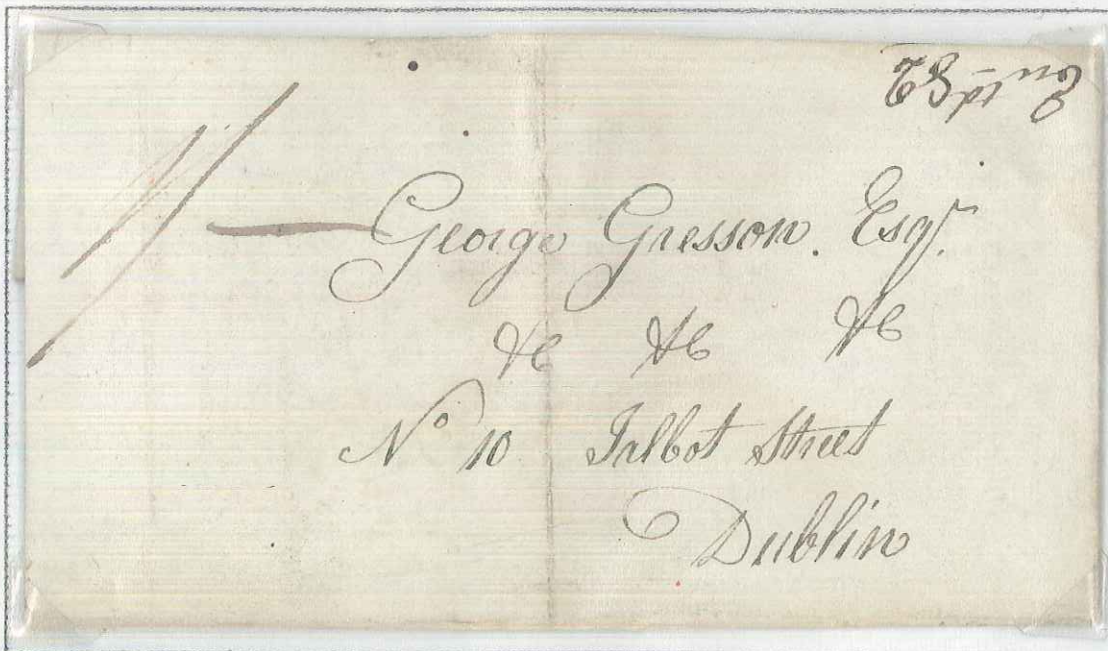 1/—
George Gresson. Esqr.
&c &c &c
No 10 Talbot Street
Dublin